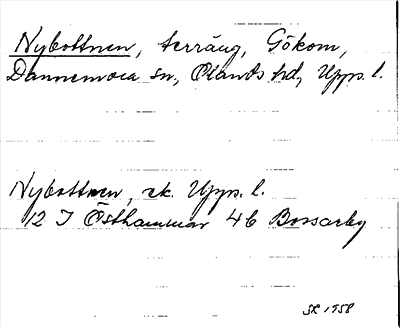 Nybottnen, terräng, Gökom,
Dannemora sn, Olands hd, Upps. l.
Nybottnen, ek. Upps. l.
12 I Östhammar 4c Bossarby
SR 1958